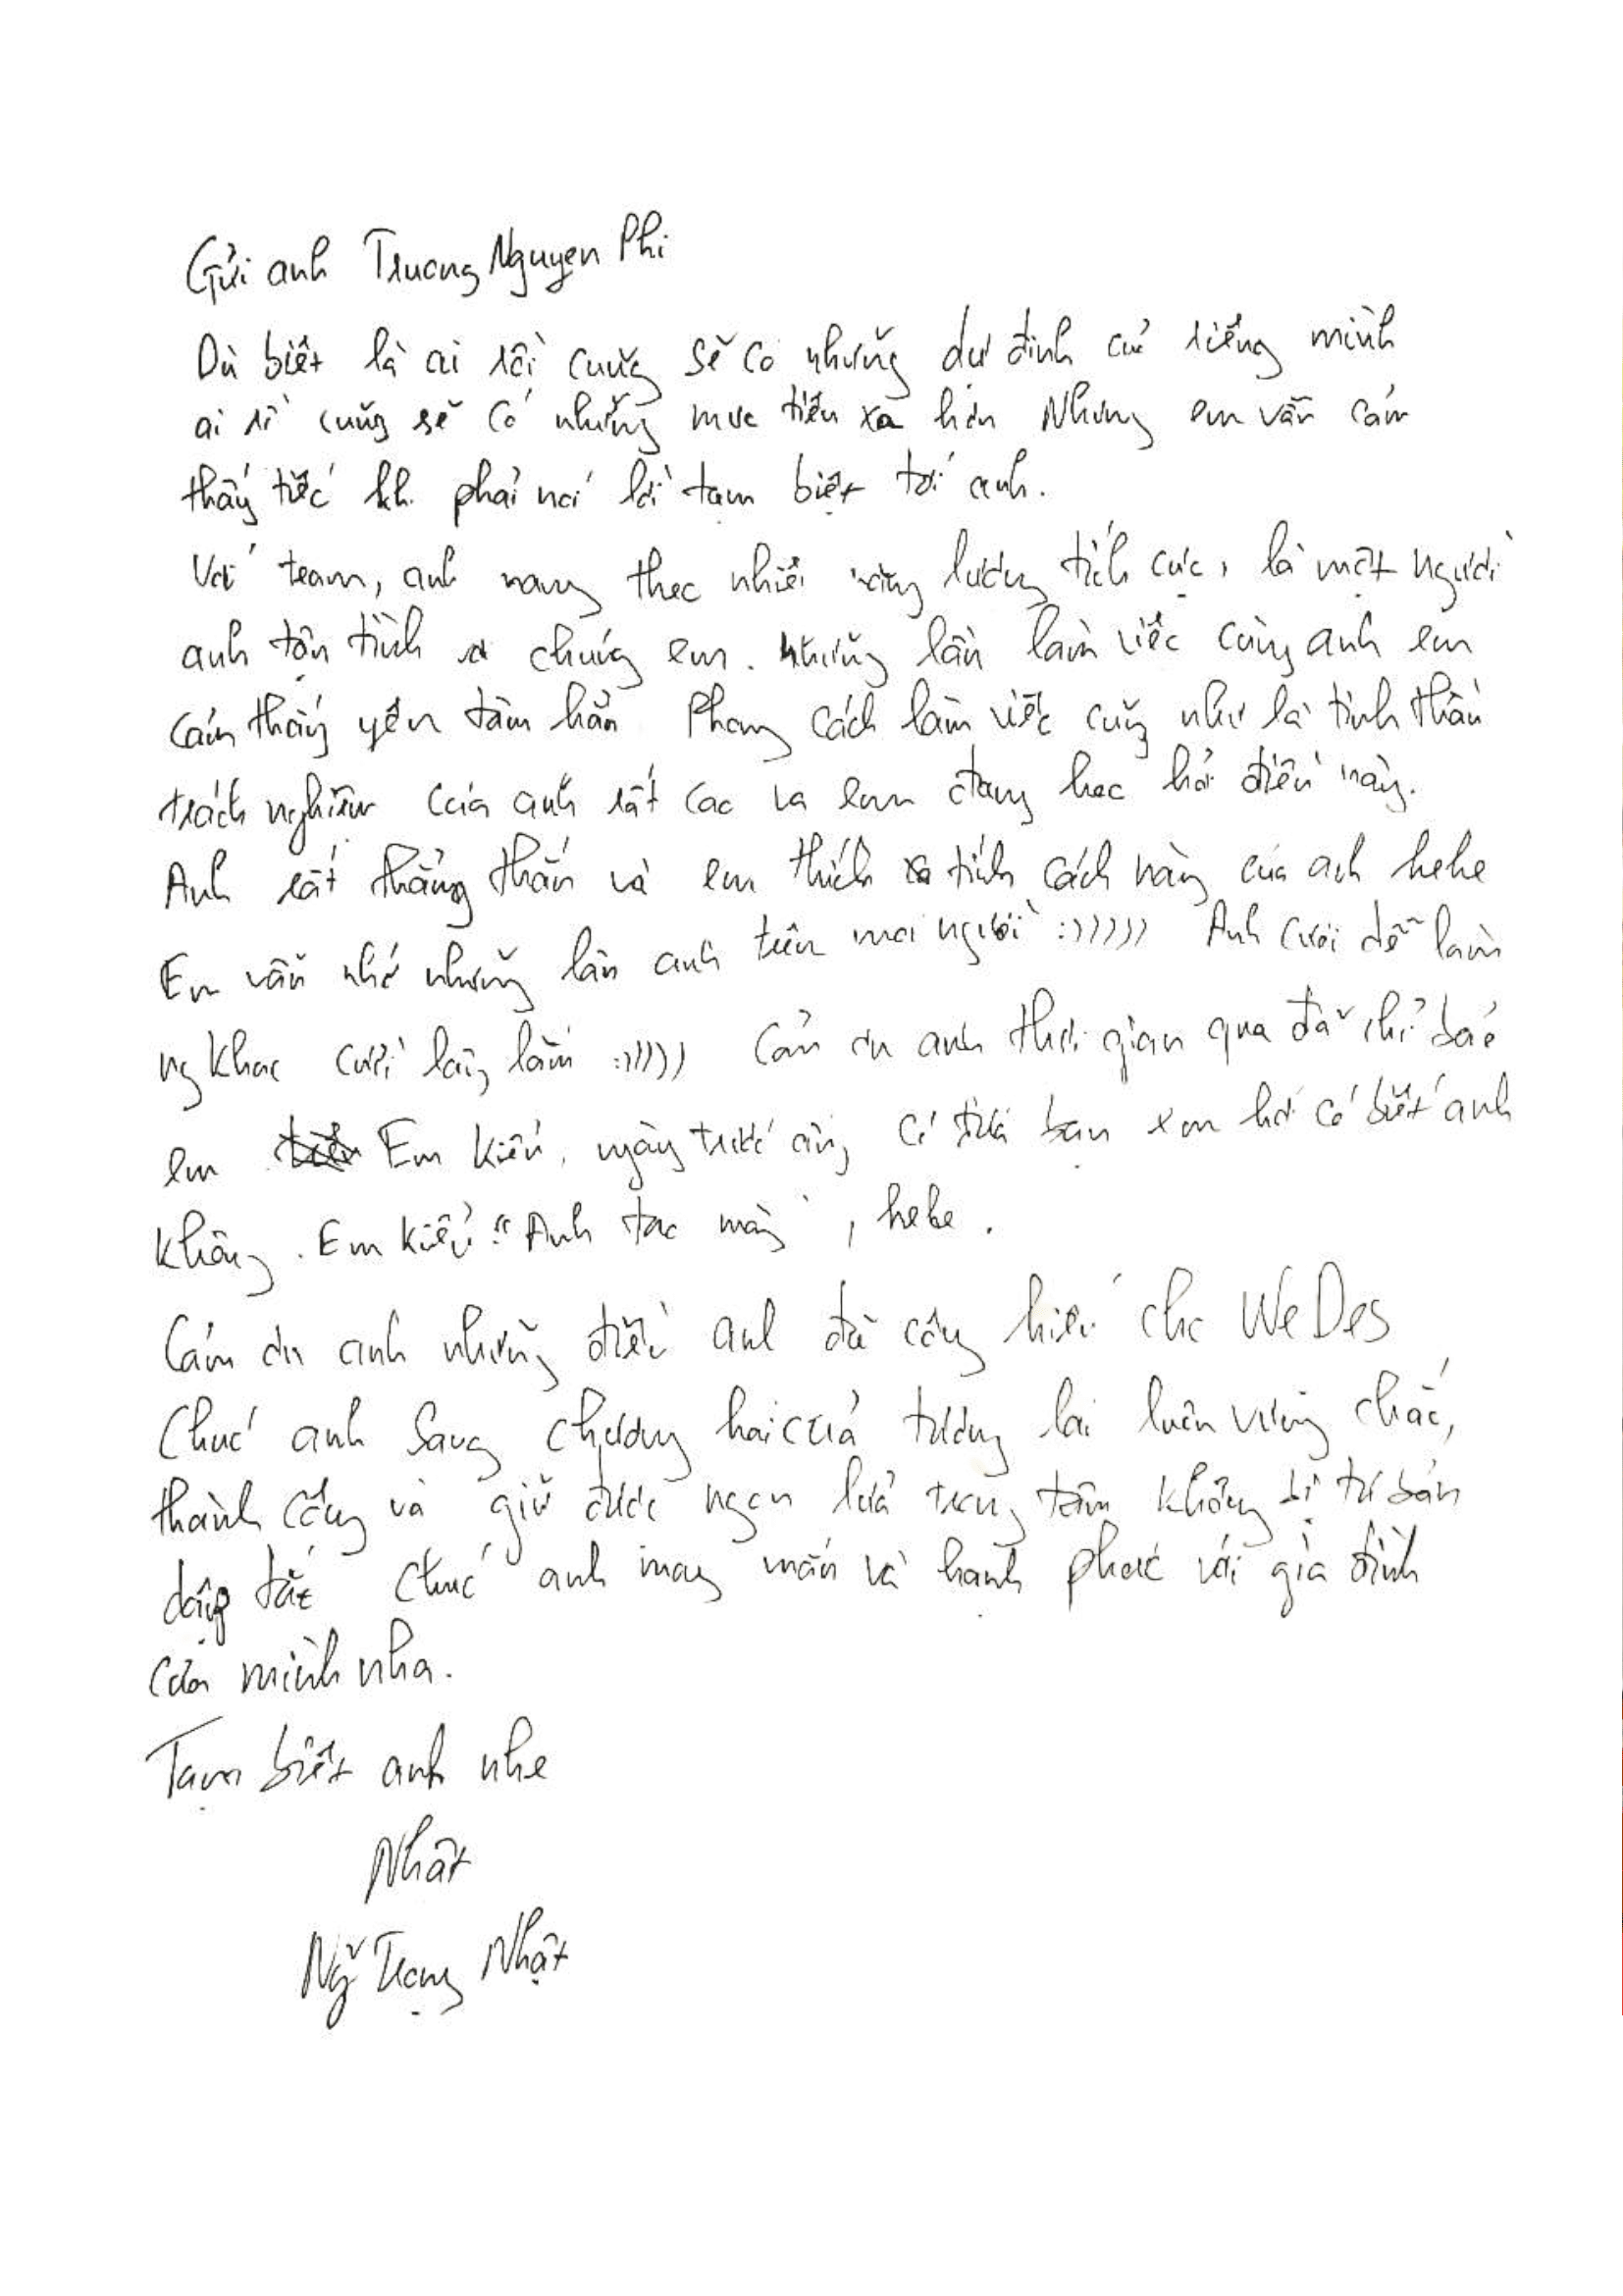 Gửi anh Truong Nguyen Phi
Dù biết là ai rồi cũng sẽ có những dự định của riêng mình
ai rồi cũng sẽ có những mục tiêu xa hơn Nhưng em vẫn cảm
thấy tiếc kh. phải nói lời tạm biệt tới anh.
Với team, anh mang theo nhiều năng lượng tích cực, là một người
anh tận tình chúng em. Những lần làm việc cùng anh em
cảm thấy yên tâm hẳn Phong cách làm việc cũng như là tinh thần
trách nghiệm của anh rất cao và em đang học hỏi điều này.
Anh rất thẳng thắn và em thích tính cách này của anh hehe
Em vẫn nhớ những lần anh trên mọi người :))))) Anh cười dễ làm
ng khác cười lắm :))))) Cảm ơn anh thời gian qua đã chỉ bảo
em Em kiểu, ngày trước cũng có đứa bạn em hỏi có biết anh
không. Em kiểu "Anh tao mày", hehe.
Cảm ơn anh những điều anh đã cống hiến cho WeDes
Chúc anh sang chương hai của tương lai luôn vững chắc,
thành công và giữ được ngọn lửa trong tâm không bị tư bản
dập tắt Chúc anh may mắn và hạnh phúc với gia đình
của mình nha.
Tạm biệt anh nhe
Nhật
Trọng Nhật